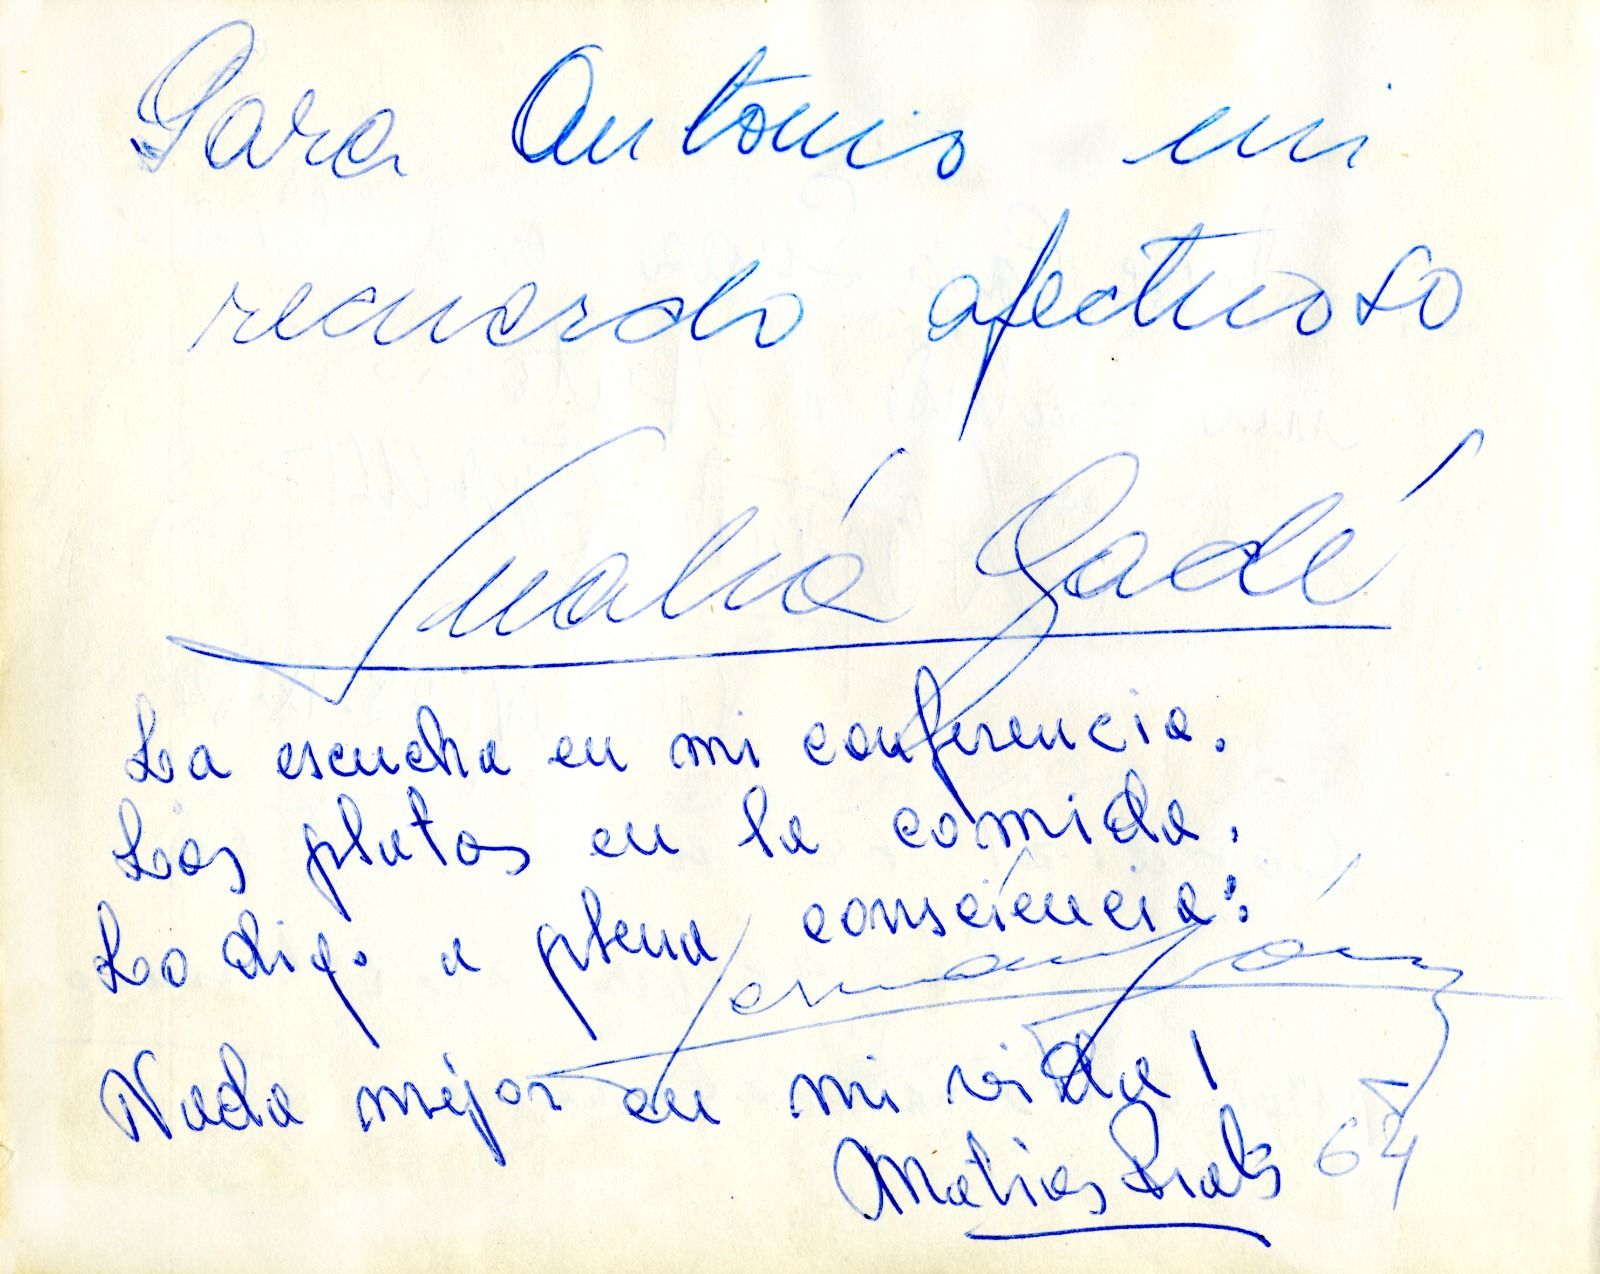 Para Antonio mi
recuerdo afectuoso
Analía Gadé
La escucha en mi conferencia.
Los platos en la comida.
Lo digo a plena consciencia:
Nada mejor en mi vida!
Matias Prats 64